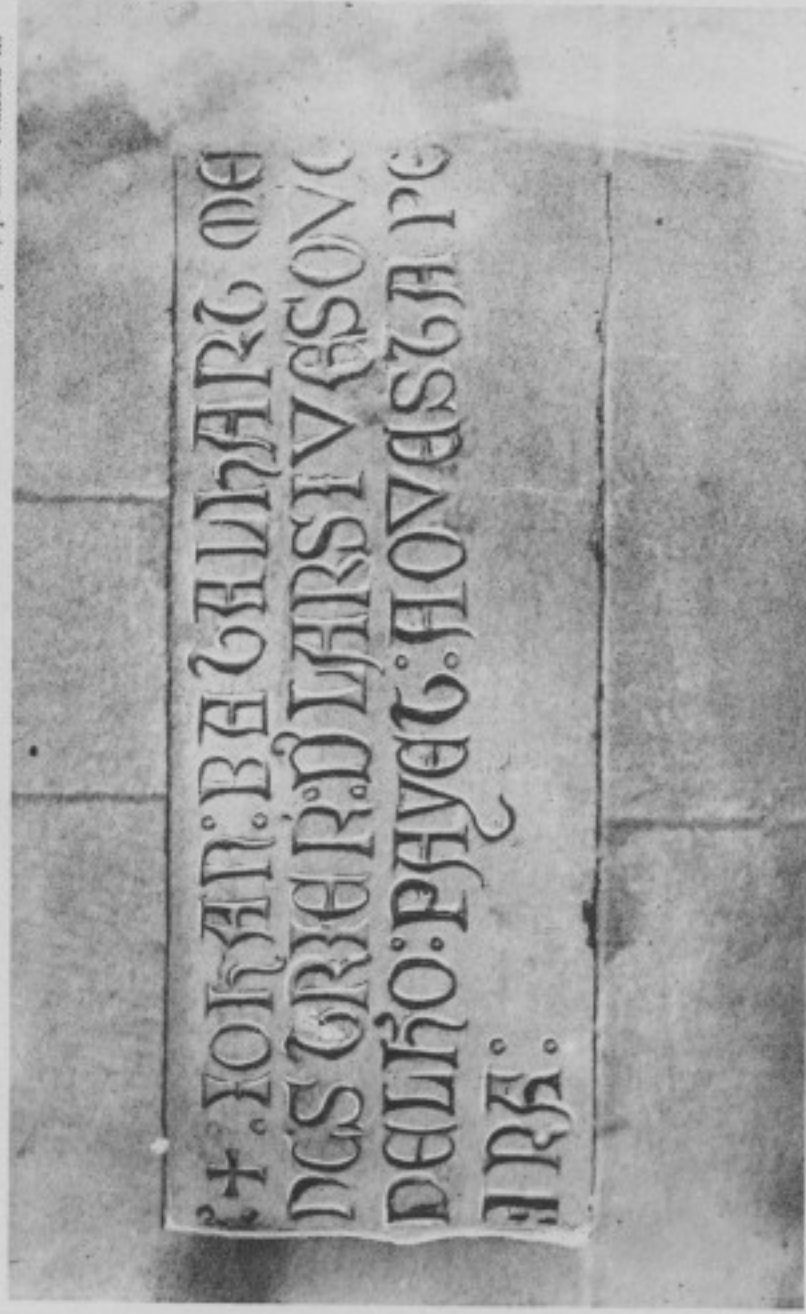 + : IOHAN : BATALHART ME
NESTRIER : D' LARSIVESQVE
DELHO : PAYET : AQVESTA PE
IRA :